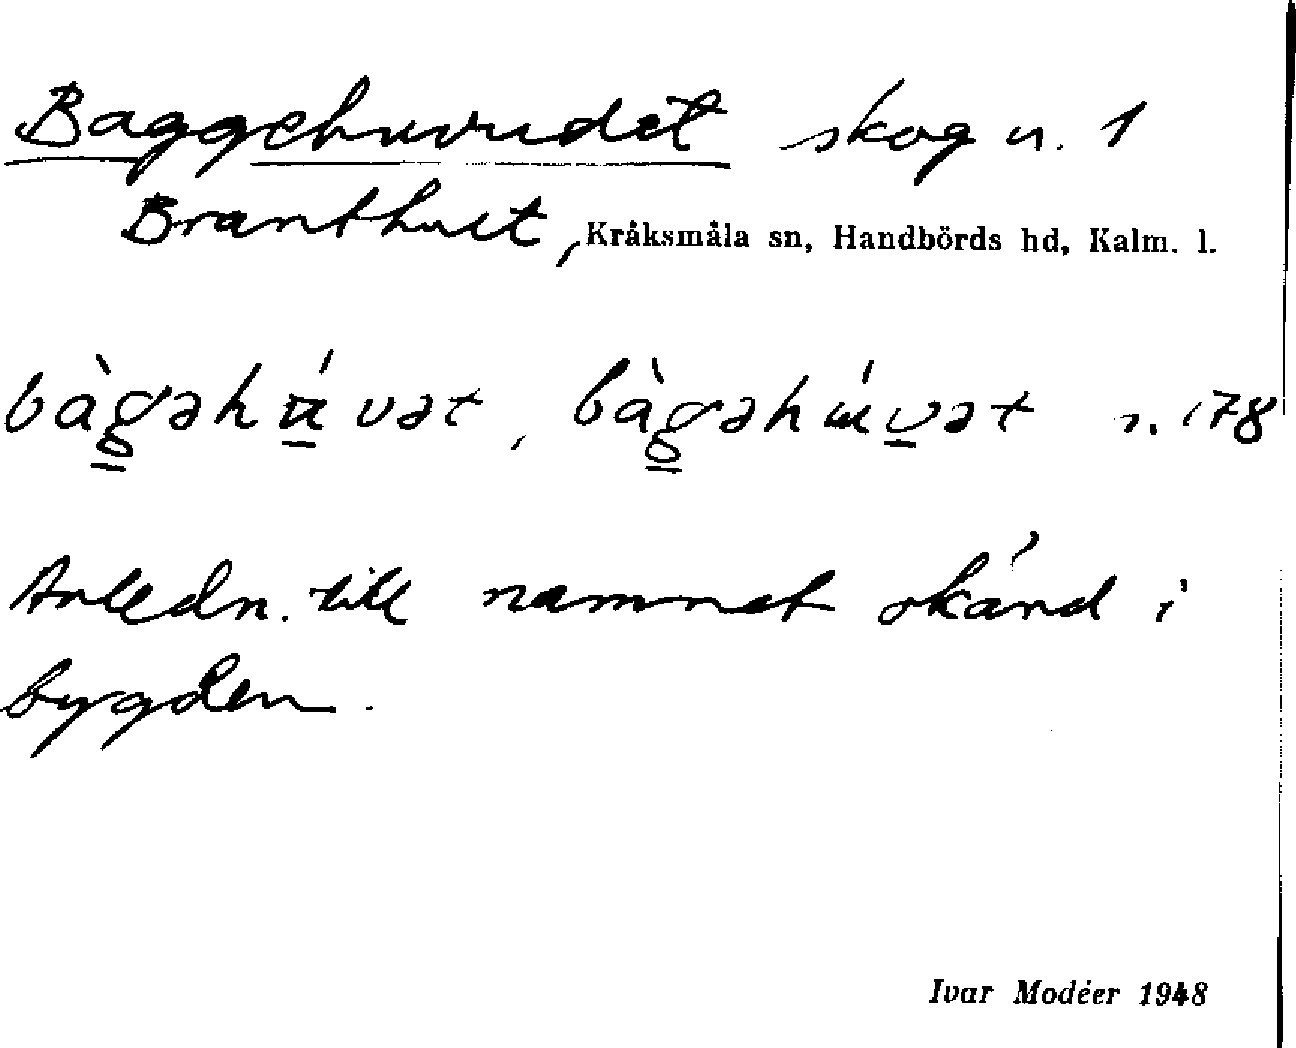 Baggehuvudet skog n. 1
Branthult, Kråksmåla sn, Handbörds hd, Kalm. l.
bàgəhúvət, bàgəhúvət n. 178
Anledn. till namnet okänd i
bygden.
Ivar Modéer 1948